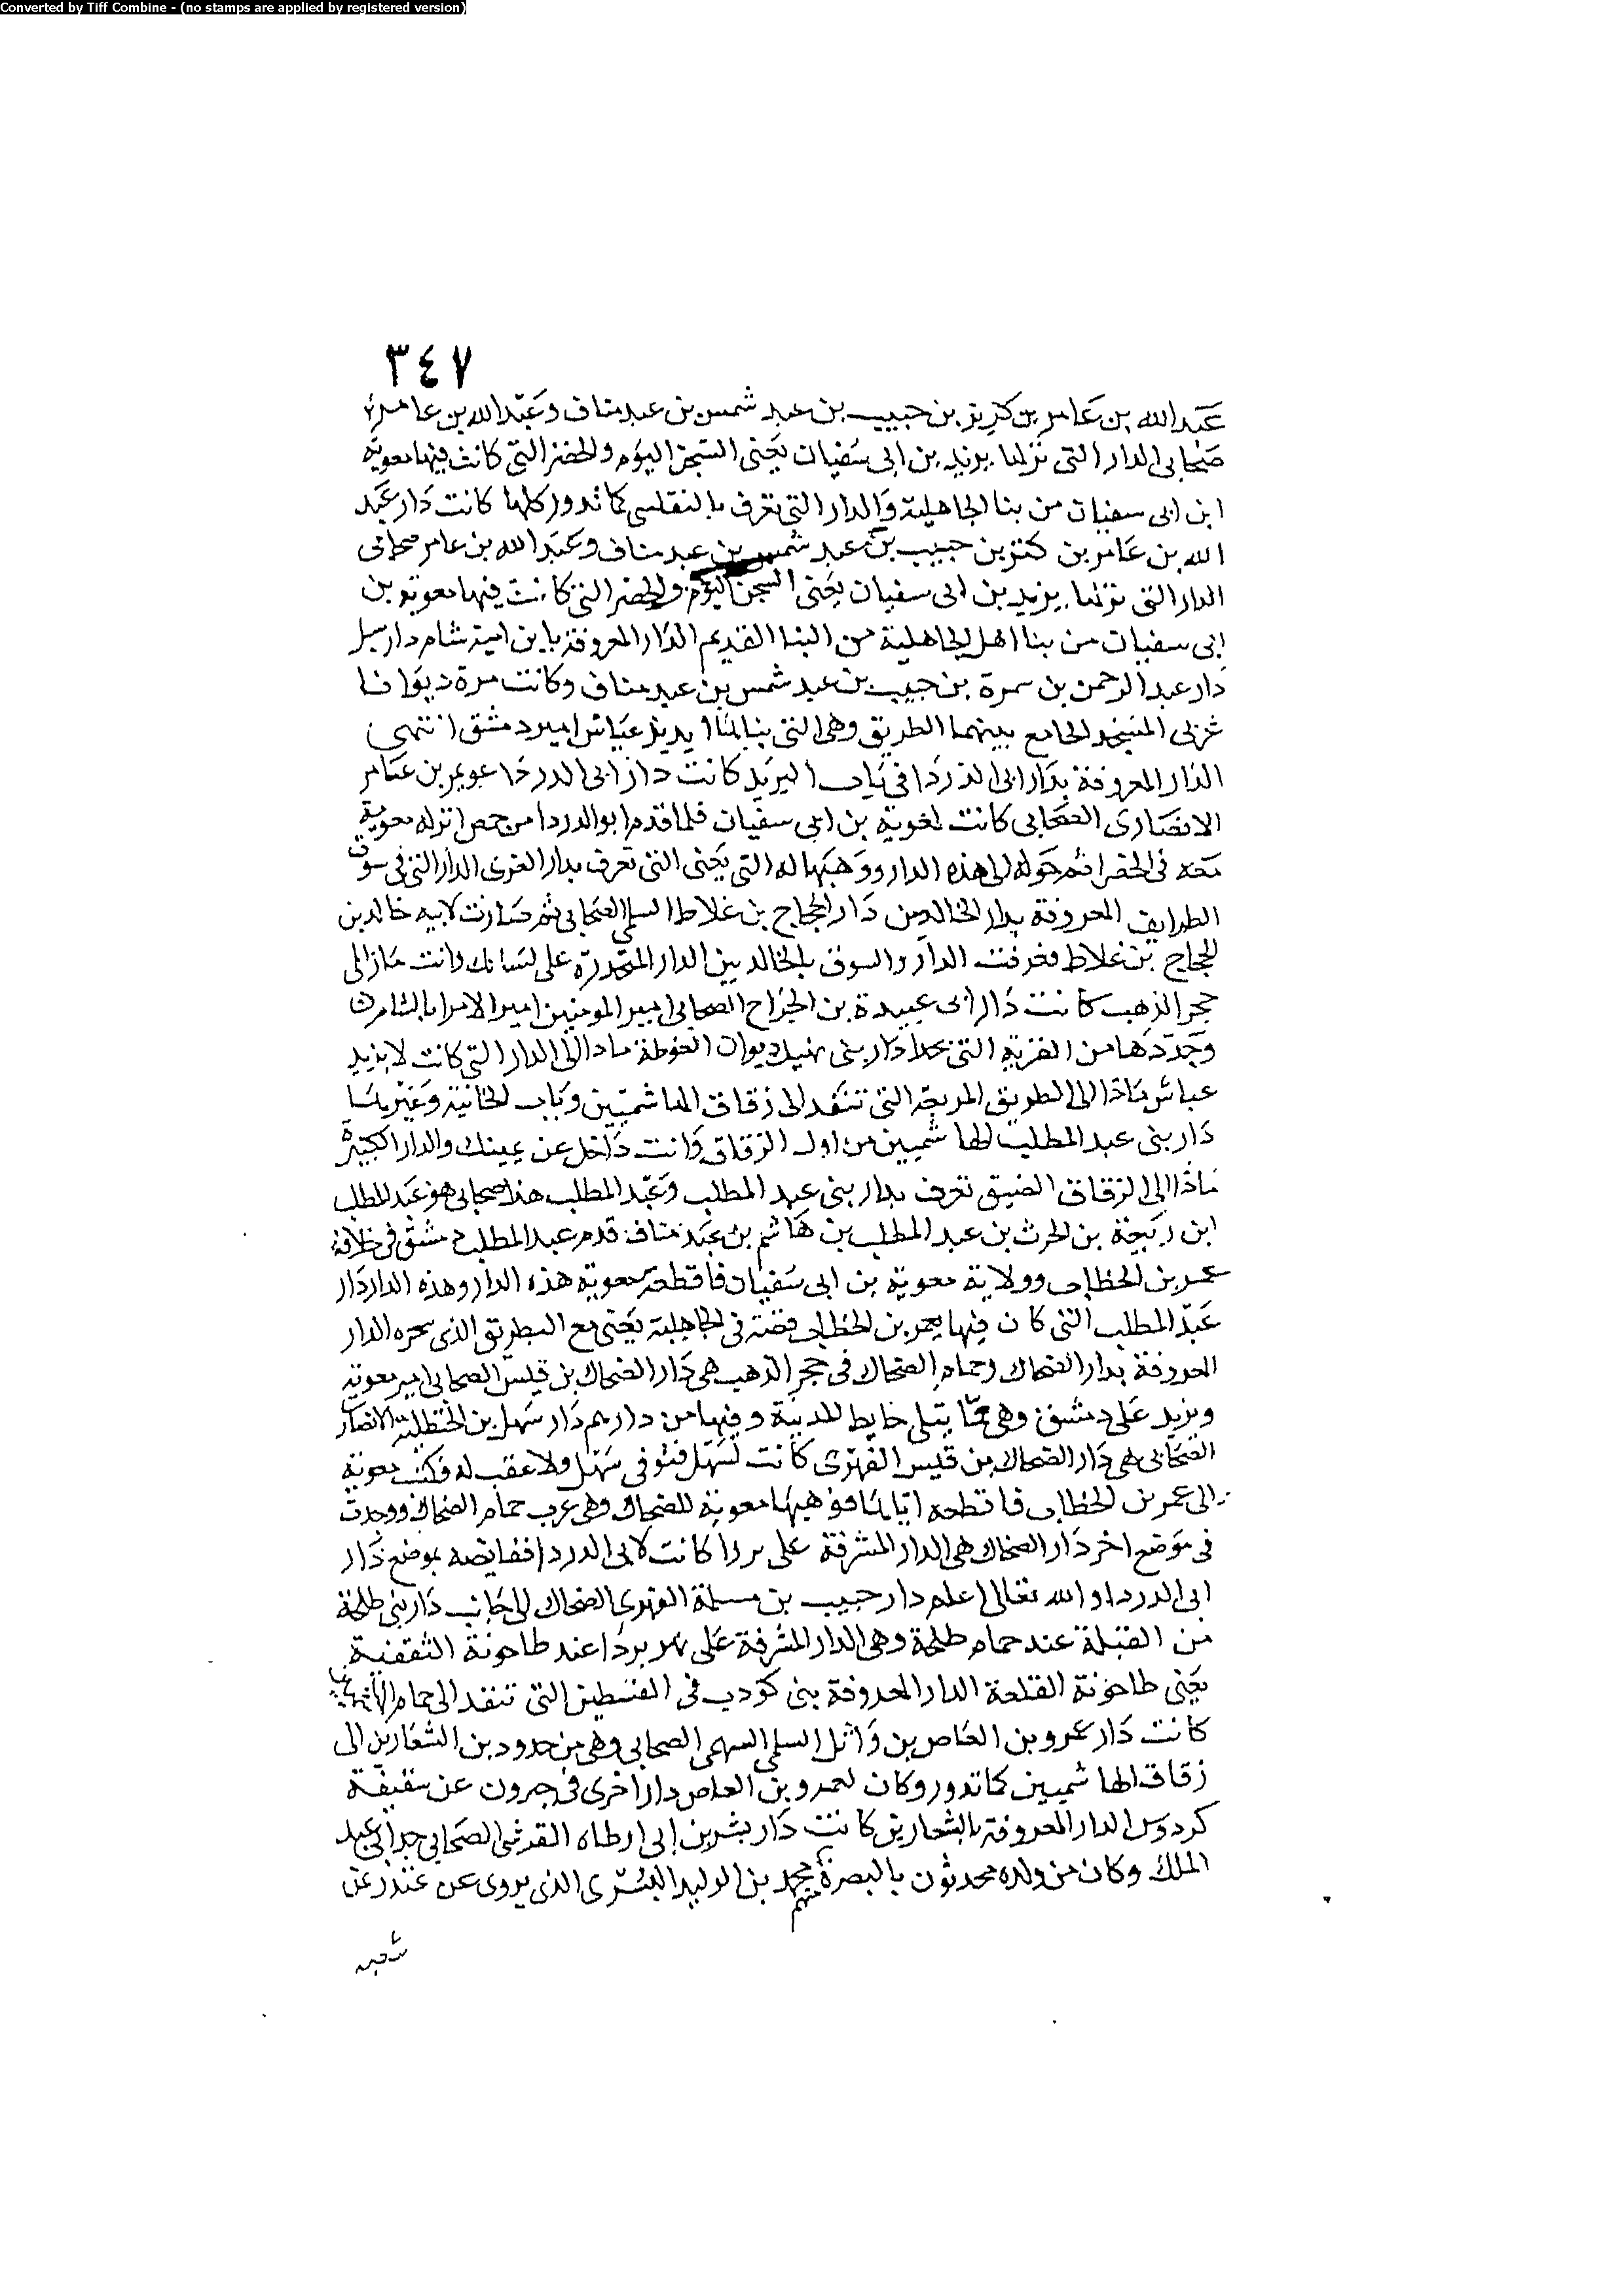 Converted by Tiff Combine - (no stamps are applied by registered version)
٣٤٧
عبد الله بن عامر بن كريز بن حبيب بن عبد شمس بن عبد مناف وعبد الله بن عامر
صحابى الدار التى نزلها يزيد بن ابى سفيان يعنى السجن اليوم والخضر التى كانت فيها معوية
ابن ابى سفيان من بنا الجاهلية والدار التى تعرف بالنقلسى كما تدور كلها كانت دار عبد
الله بن عامر بن كتز بن حبيب بن عبد شمس بن عبد مناف وعبد الله بن عامر صحابى
الدار التى نزلها يزيد بن ابى سفيان يعنى السجن اليوم والخضر التى كانت فيها معوية بن
ابى سفيان من بنا اهل الجاهلية من البنا القديم الدار المعروفة بابن امية شام دار
دار عبد الرحمن بن سمرة بن حبيب بن عبد شمس بن عبد مناف وكانت مرة ديوانا
غربى المسجد الجامع بينهما الطريق وهى التى بناها ابو يزيد عياش امير دمشق انتهى
الدار المعروفة بدار ابى الدردا فى باب البريد كانت دار ابى الدردا عويمر بن عامر
الانصارى الصحابى كانت لمعوية بن ابى سفيان فلما قدم ابو الدردا من حمص انزله معوية
معه فى الخضرا ثم حوله الى هذه الدار ووهبها له التى يعنى التى تعرف بدار الغزى الدار التى فى سوق
الطرايف المعروفة بدار الخالدين دار الحجاج بن غلاط السلمى الصحابى ثم صارت لابيه خالد بن
الحجاج بن غلاط فعرفت الدار والسوق بالخالديين الدار المتحدرة على لسانك وانت مار الى
حجر الذهب كانت دار ابى عبيدة بن الجراح الصحابى امير المومنين امير الامرا بالشام
وجددها من القرية التى دار بنى نهيك ديوان الغوطة مادا الى الدار التى كانت لابزيد
عباس مادا الى الطريق المربعة التى تنفد الى زقاق الهاشميين وباب الخانية وغيرها
دار بنى عبد المطلب الهاشميين من اول الزقاق وانت داخل عن يمينك والدار الكبيرة
مادا الى الزقاق الضيق تعرف بدار بنى عبد المطلب وعبد المطلب هذا صحابى هو عبد المطلب
ابن ربيعة بن الحرث بن عبد المطلب بن هاشم بن عبد مناف قدم عبد المطلب دمشق فى خلافة
عمر بن الخطاب وولاية معوية بن ابى سفيان فاقطعه معوية هذه الدار وهذه الدار دار
عبد المطلب التى كان فيها لعمر بن الخطاب قصة فى الجاهلية يعنى مع البطريق الذى سخره الدار
المعروفة بدار الضحاك وحمام الضحاك فى حجر الذهب هى دار الضحاك بن قيس الصحابى امير معوية
ويزيد على دمشق وهى مما يلى حايط المدينة وفيها من دارهم دار سهل بن الحنظلية الانصار
الصحابى هى دار الضحاك بن قيس الفهرى كانت لسهل فتوفى سهل ولا عقب له فكتب معوية
الى عمر بن الخطاب فاقطعه اياها فوهبها معوية للضحاك وهى غرب حمام الضحاك ووجدت
فى موضع اخر دار الضحاك هى الدار المشرفة على بردا كانت لابى الدردا فقايضه بموضع دار
ابى الدردا والله تعالى اعلم دار حبيب بن مسلمة الفهرى الضحاك الى جانب دار بنى طلحة
من القبلة عند حمام طلحة وهى الدار المشرفة على نهر بردا عند طاحونة الثقفية
يعنى طاحونة القلعة الدار المعروفة ببنى كوديب فى الفسطين التى تنفد الى حمام
كانت دار عمرو بن العاص بن وائل السلمى السهمى الصحابى وهى من حدود بن الشعارين الى
زقاق الهاشميين كما تدور وكان لعمرو بن العاص دار اخرى فى جيرون عن سقيفة
كردوس الدار المعروفة بالشعارين كانت دار بشر بن ابى ارطاه القرشى الصحابى جد ابى عبد
الملك وكان من ولده محدثون بالبصرة منهم محمد بن الوليد البسرى الذى يروى عن غندر عن
شعبه